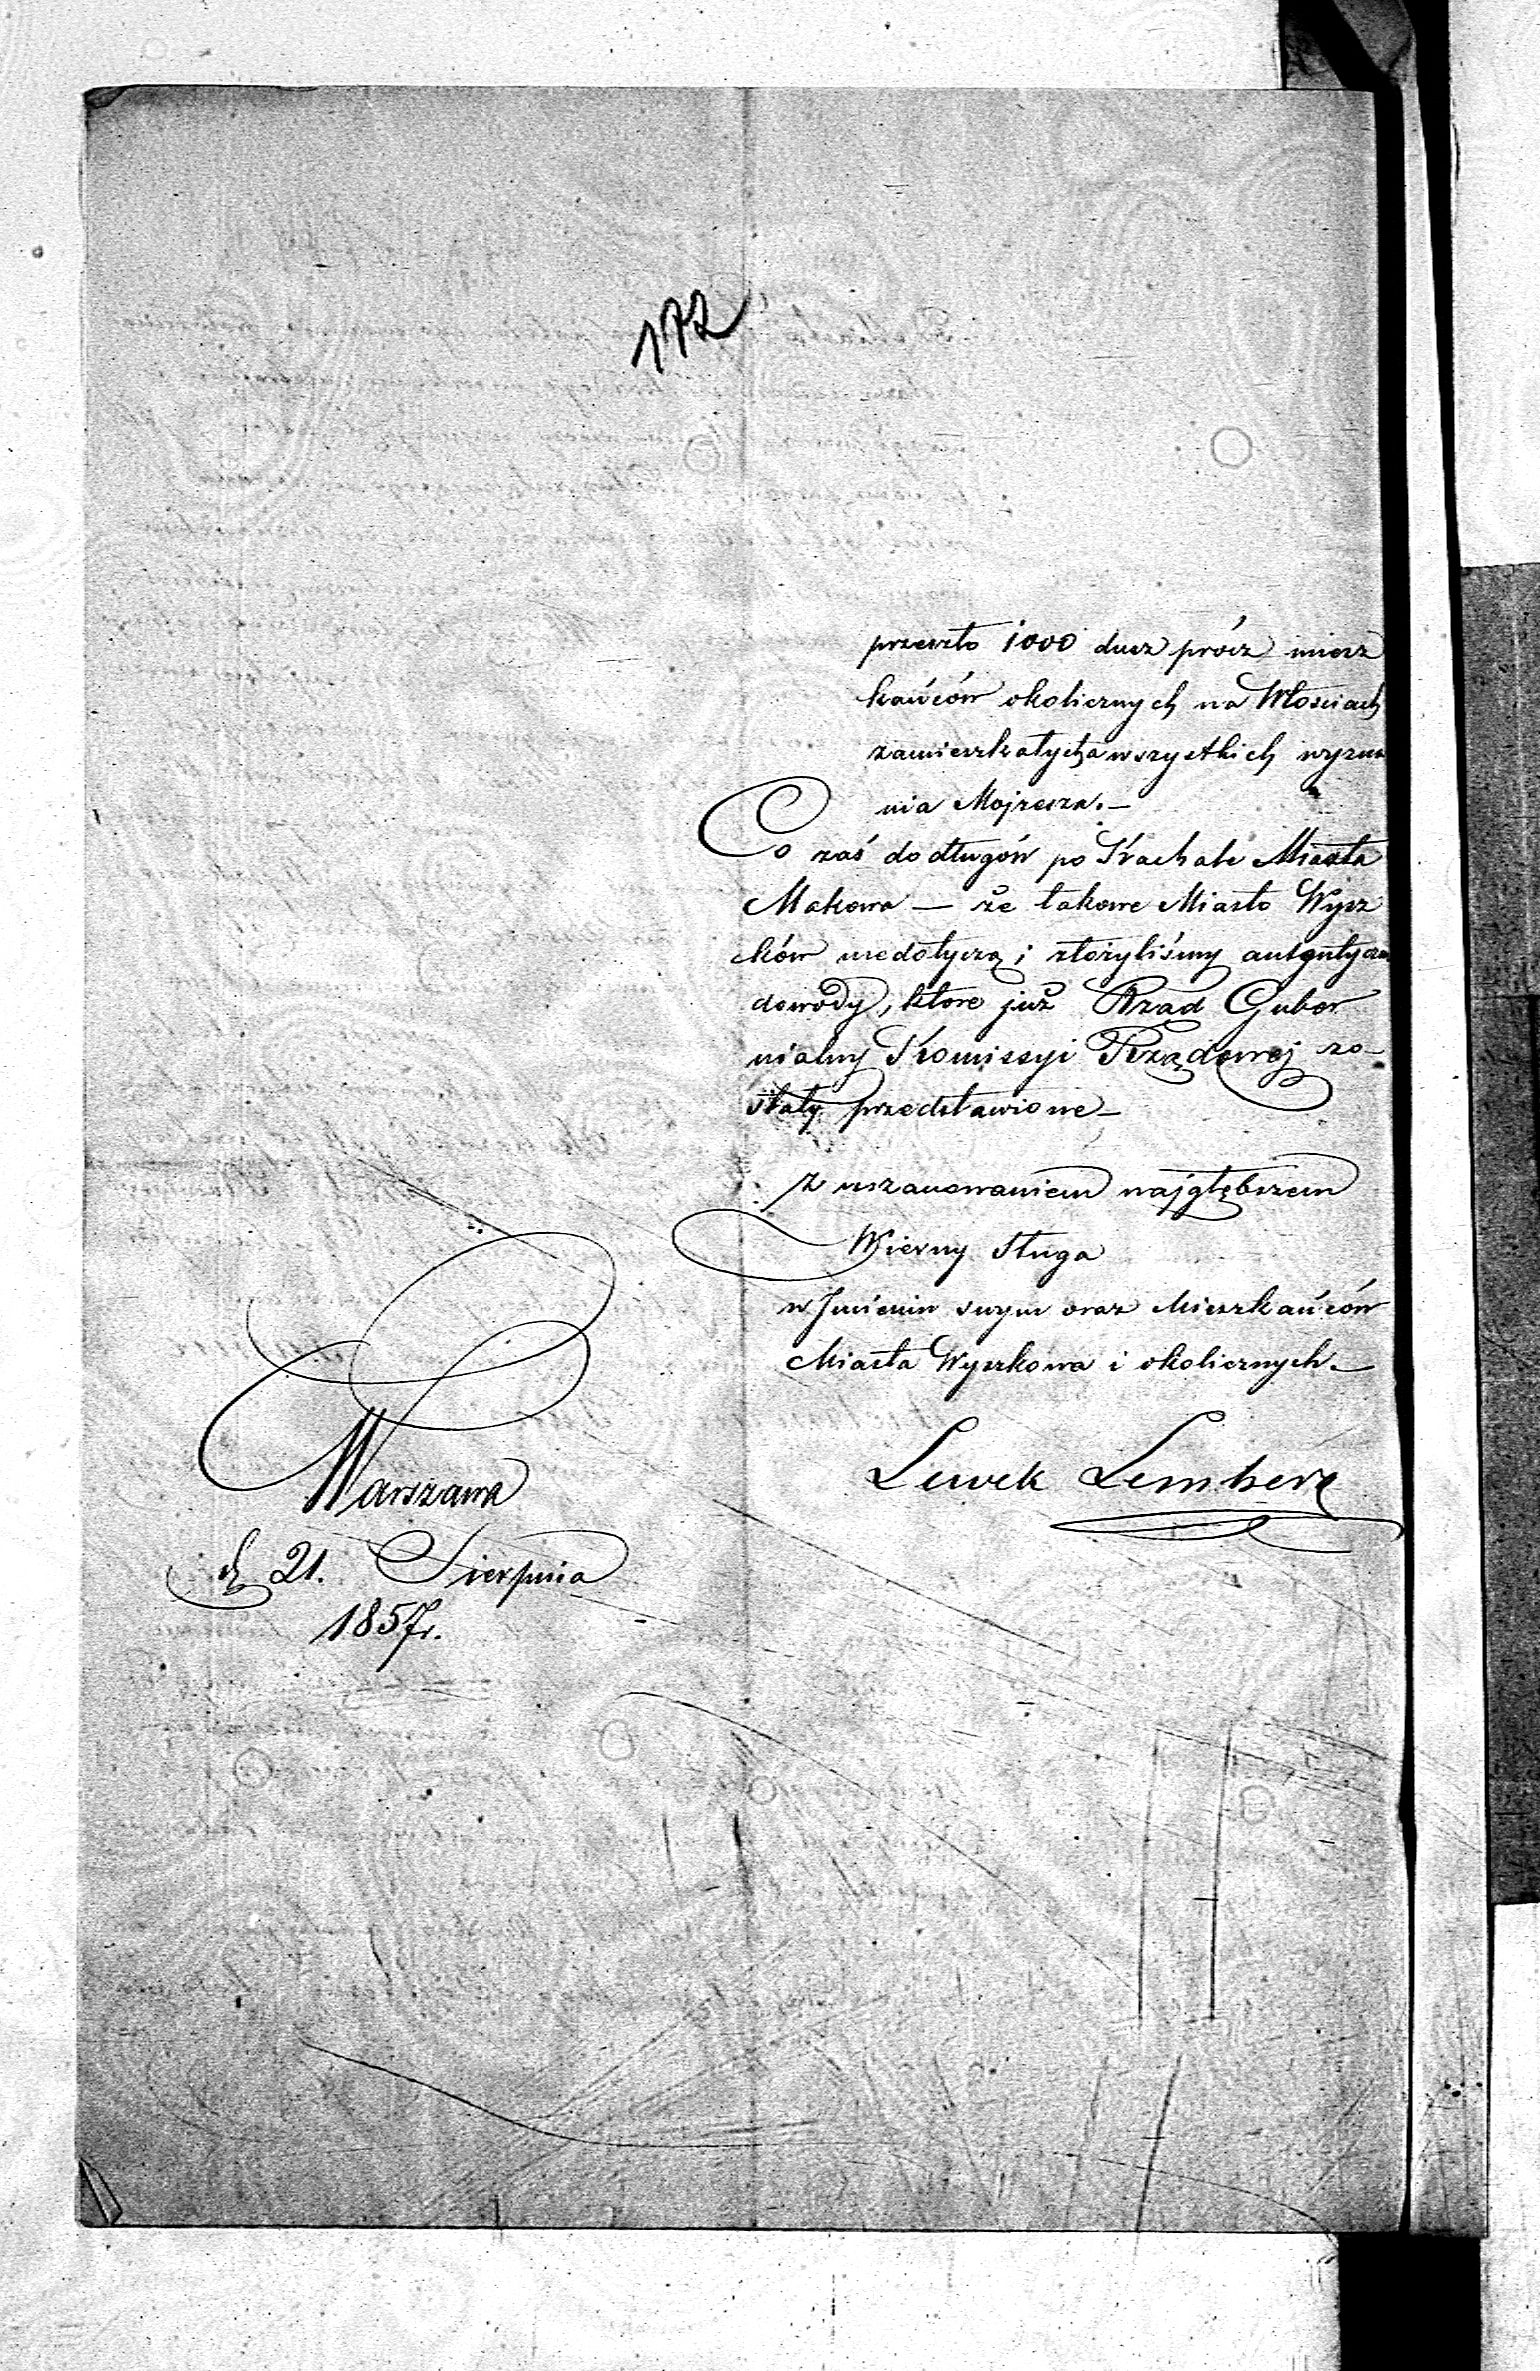 172
przeszło 1000 dusz prócz miesz
kańców okolicznych na Włosciach
zamieszkałych a wszystkich wyzna
nia Mojzesza. —
Co zaś do długów po Kachale Miasta
Makowa — że takowe Miasto Wysz
ków niedotyczą; złożyliśmy autentyczn
dowody, ktore już Rząd Guber
nialny Kommissyi Rządowej zo-
stały przedstawione —
Z uszanowaniem najgłębszem
Wierny Sługa
w Imieniu swym oraz Mieszkańców
Miasta Wyszkowa i okolicznych. —
Lewek Lemberg
Warszawa
d 21. Sierpnia
1857r.